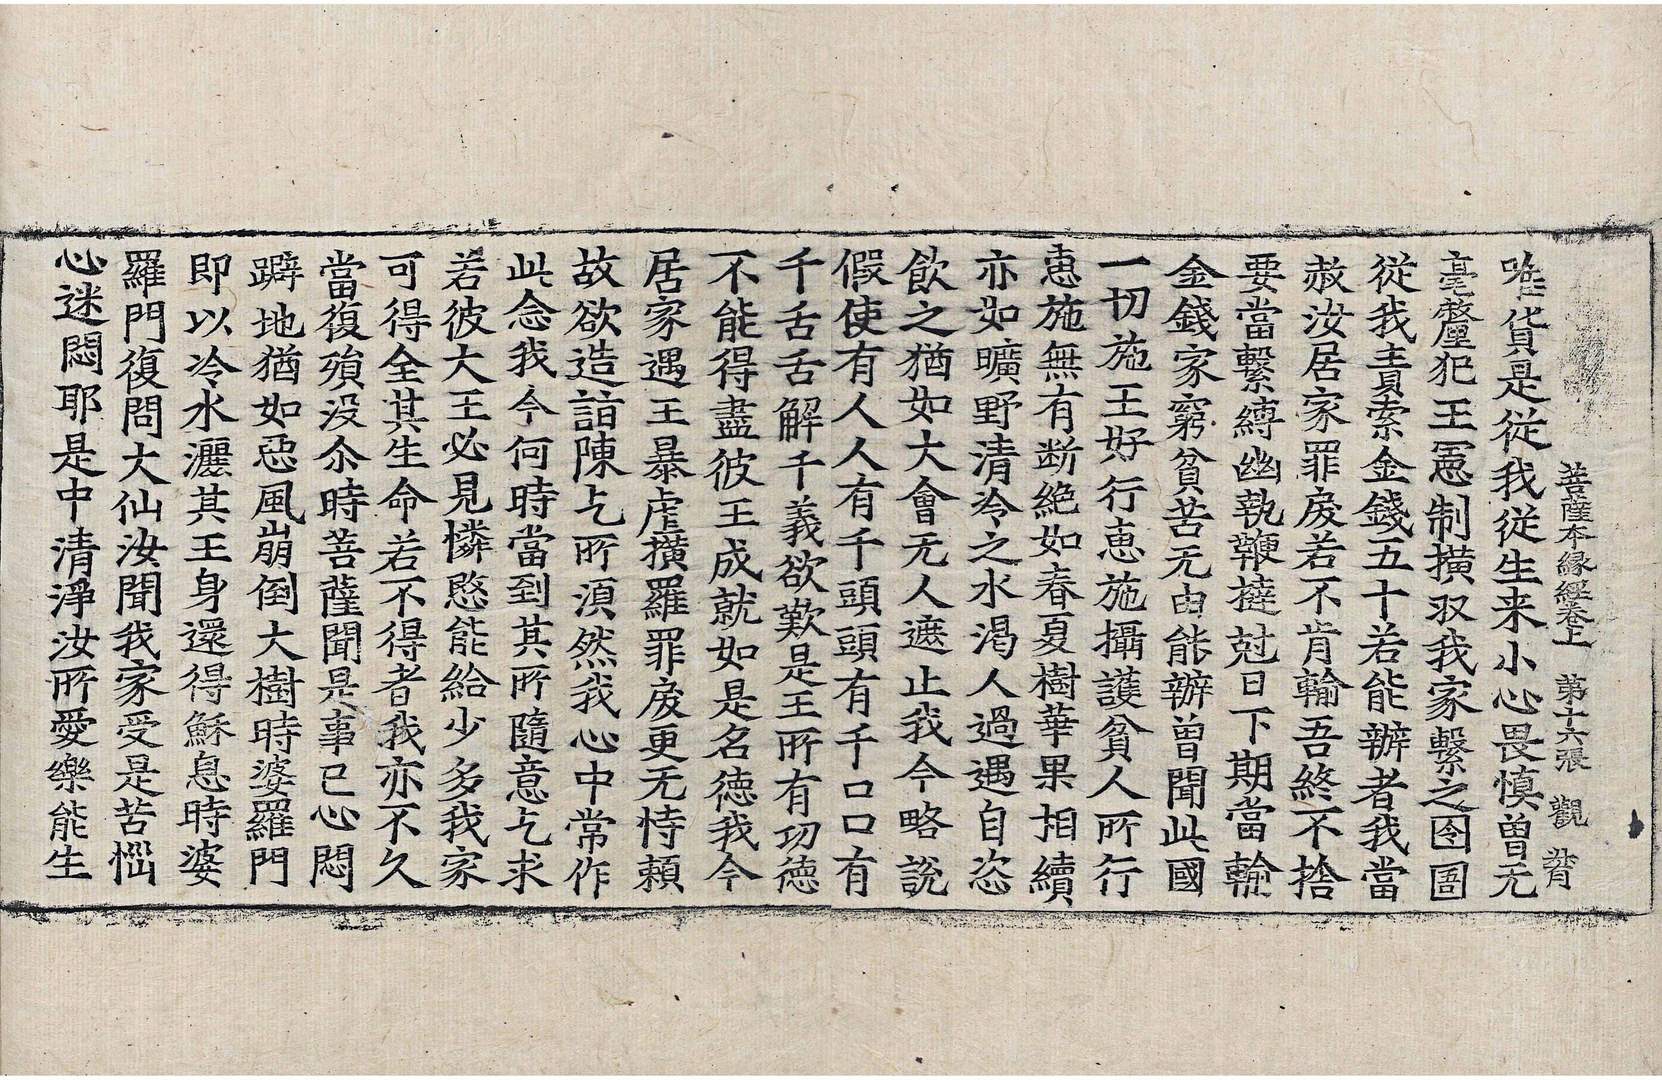 菩薩本緣經卷上 第十六張 觀
唯貨是從我從生来小心畏慎曽无
毫氂犯王憲制横収我家繫之囹圄
從我責索金錢五十若能辦者我當
赦汝居家罪戾若不肯輸吾終不捨
要當繫縛幽執鞭撻尅日下期當輸
金錢家窮貧苦无由能辦曽聞此國
一切施王好行恵施攝護貧人所行
恵施無有断絶如春夏樹華果相續
亦如曠野清冷之水渇人過遇自恣
飲之猶如大會无人遮止我今略說
假使有人人有千頭頭有千口口有
千舌舌解千義欲歎是王所有功德
不能得盡彼王成就如是名德我今
居家遇王暴虐撗羅罪戾更无恃頼
故欲造詣陳乞所湏然我心中常作
此念我今何時當到其所隨意乞求
若彼大王必見憐愍能給少多我家
可得全其生命若不得者我亦不久
當復殞没尒時菩薩聞是事已心悶
躃地猶如惡風崩倒大樹時婆羅門
即以冷水灑其王身還得穌息時婆
羅門復問大仙汝聞我家受是苦惱
心迷悶耶是中清淨汝所愛樂能生